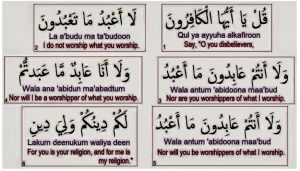 قُلْ يَا أَيُّهَا الْكَافِرُونَ
Qul ya ayyuha alkafiroon
Say, "O you disbelievers,
1
لَا أَعْبُدُ مَا تَعْبُدُونَ
La a'budu ma ta'budoon
I do not worship what you worship.
2
وَلَا أَنتُمْ عَابِدُونَ مَا أَعْبُدُ
Wala antum 'abidoona maa'bud
Nor are you worshippers of what I worship.
3
وَلَا أَنَا عَابِدٌ مَّا عَبَدتُّمْ
Wala ana 'abidun ma'abadtum
Nor will I be a worshipper of what you worship.
4
وَلَا أَنتُمْ عَابِدُونَ مَا أَعْبُدُ
Wala antum 'abidoona maa'bud
Nor will you be worshippers of what I worship.
5
لَكُمْ دِينُكُمْ وَلِيَ دِينِ
Lakum deenukum waliya deen
For you is your religion, and for me is
my religion."
6